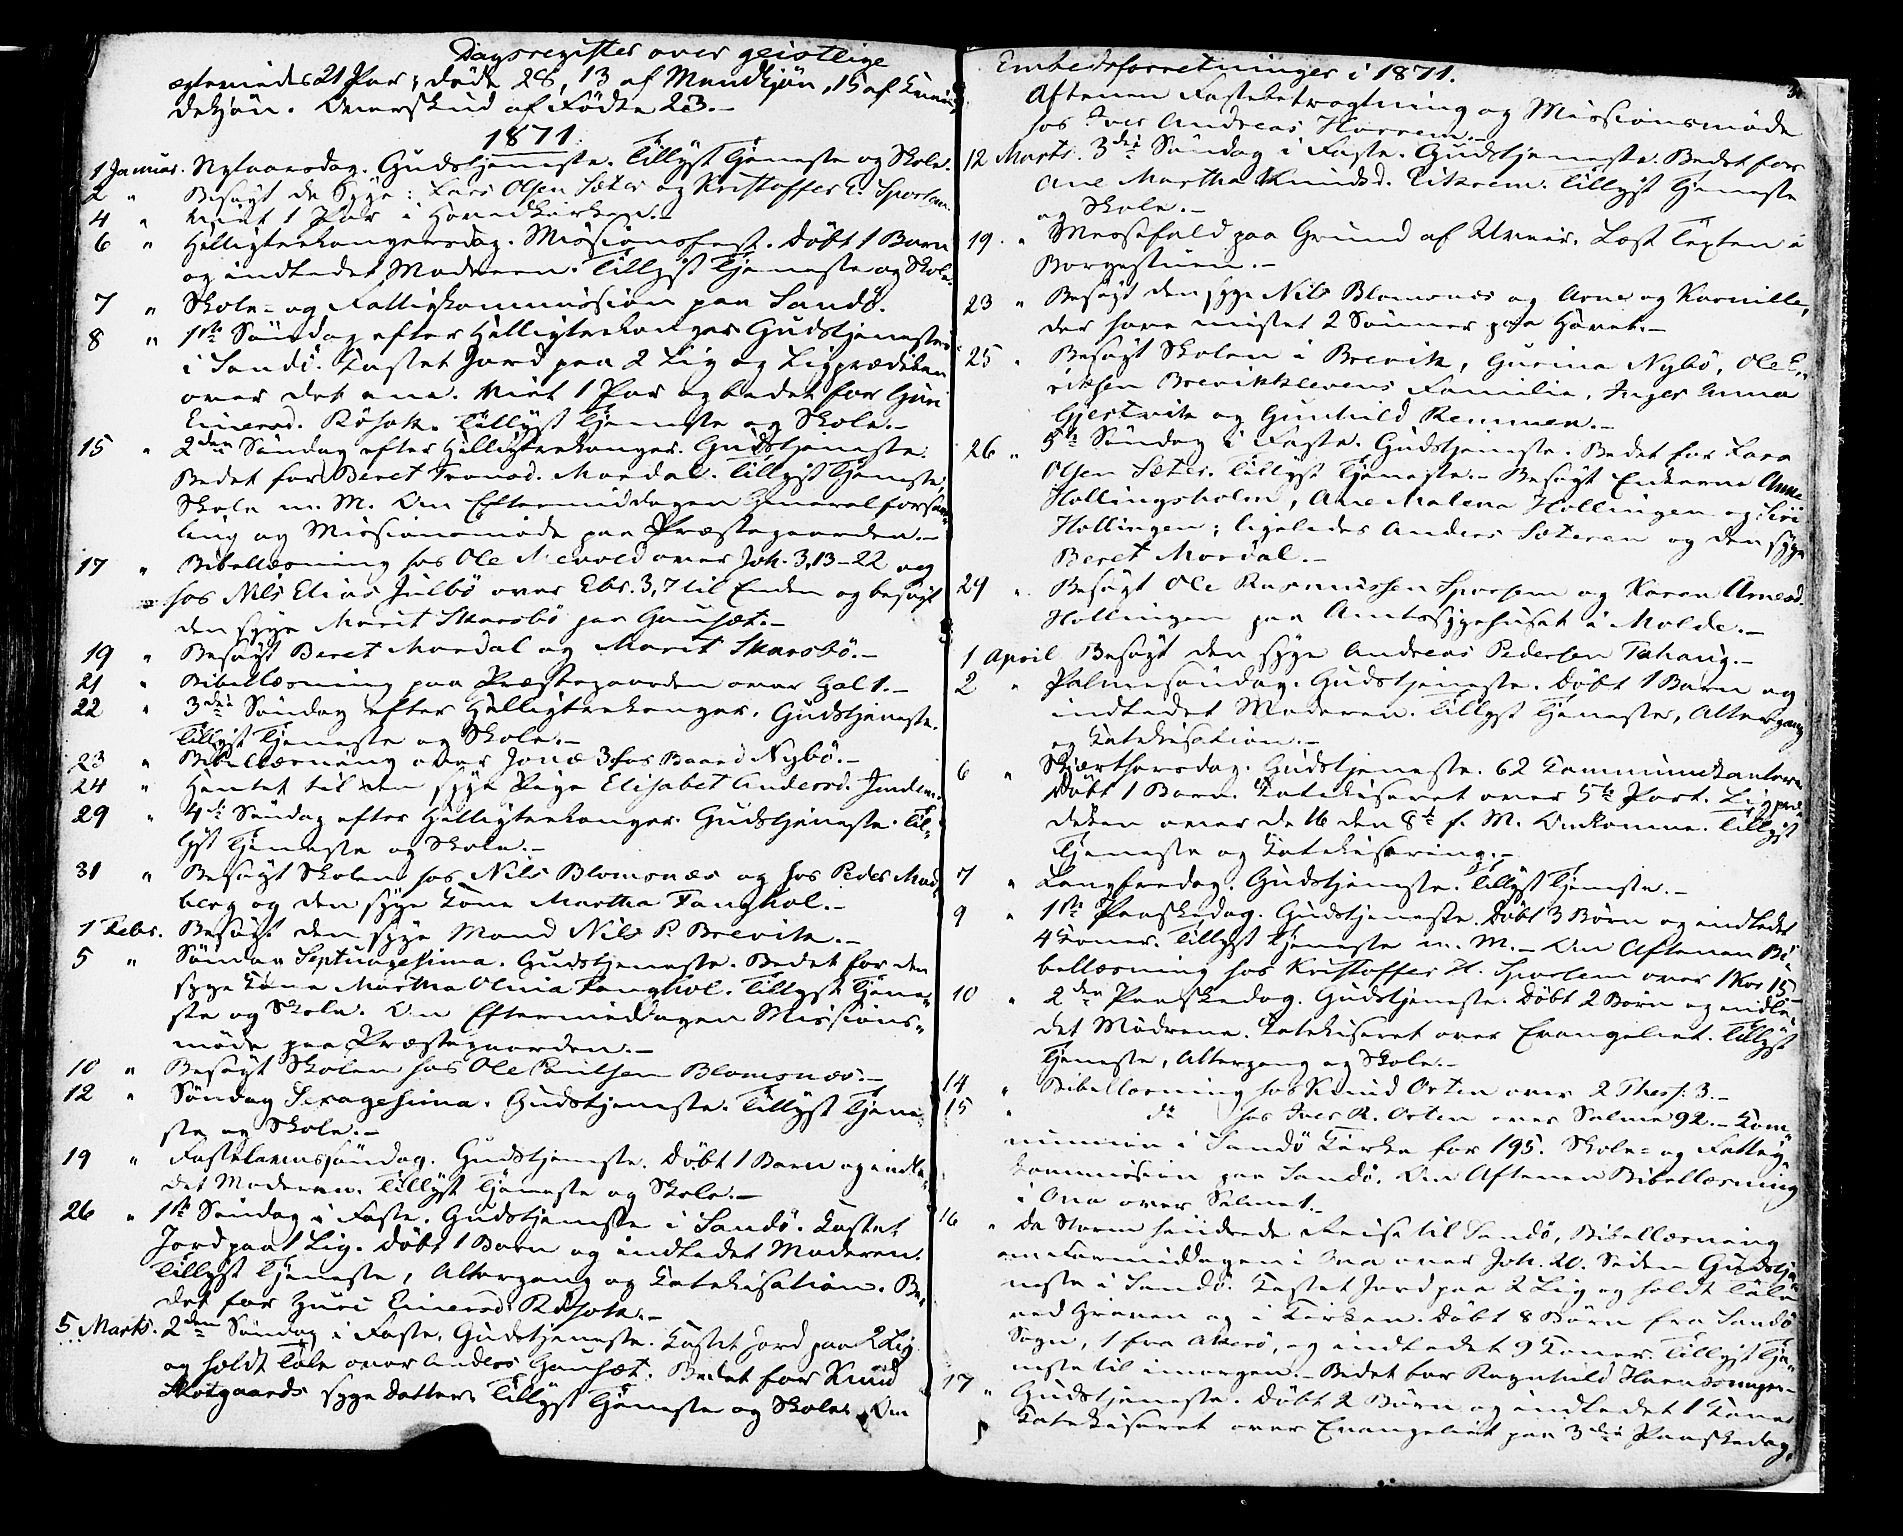 Dagsregister over geistlige
ægteviede 21 Par; døde 28, 13 af Mandkjön, 15 af Kvin-
dekjön. Overskud af Födte 23.-
1871.
1 Januar. Nytaarsdag. Gudstjeneste. Tillyst Tjeneste og Skole.
2 " Besögt de Syge: Lars Olsen Sæter og Kristoffer E. Sporsem.
4 " Viet 1 Par i Hovedkirken.-
6 " Helligtrekongersdag. Missionsfest. Döbt 1 Barn
og indledet Moderen. Tillyst Tjeneste og Skole.
7 " Skole- og Fattigkommission paa Sandö.
8 " 1ste Söndag efter Helligtrekonger Gudstjeneste
i Sandö. Kastet Jord paa 2 Lig og Ligprædiken
over det ene. Viet 1 Par og bedet for Guri
Einersd. Rösok. Tillyst Tjeneste og Skole.-
15 " 2den Söndag efter Helligtrekonger. Gudstjeneste.
Bedet for Beret Tronsd. Mordal. Tillyst Tjeneste,
Skole m. M. Om Eftermiddagen Generalforsam-
ling og Missionsmöde paa Præstegaarden.-
17 " Bibellæsning hos Ole Nervold over Joh. 3,13-22 og
hos Nils Elias Julbö over Ebr. 3,7 til Enden og besögt
den syge Marit Skarsbö paa Gauset.-
19 " Besögt Beret Mordal og Marit Skarsbö.-
21 " Bibellæsning paa Præstegaarden over Gal 1.-
22 " 3die Söndag efter Helligtrekonger. Gudstjeneste.
Tillyst Tjeneste og Skole.-
23 " Bibellæsning over Jonæ 3 hos Baard Nybö.-
24 " Hentet til den syge Pige Elisabet Andersd. Jendem.
29 " 4de Söndag efter Helligtrekonger. Gudstjeneste. Til-
lyst Tjeneste og Skole.-
31 " Besögt Skolen hos Nils Blomsnæs og hos Peder Mad-
berg og den syge Kone Martha Tanghol.-
1 Febr. Besögt den syge Mand Nils P. Brevik.-
5 " Söndag Septuagesima. Gudstjeneste. Bedet for den
syge Kone Martha Olina Tanghol. Tillyst Tjene-
ste og Skole. Om Eftermiddagen Missions-
möde paa Præstegaarden.-
10 " Besögt Skolen hos Ole Paulsen Blomsnæs.-
12 " Söndag Sexagesima. Gudstjeneste. Tillyst Tjene-
ste og Skole.-
19 " Fastelavnssöndag. Gudstjeneste. Döbt 1 Barn og indle-
det Moderen. Tillyst Tjeneste og Skole.-
26 " 1ste Söndag i Faste. Gudstjeneste i Sandö. Kastet
Jord paa 1 Lig. Döbt 1 Barn og indledet Moderen.
Tillyst Tjeneste, Altergang og Katekisation. Be-
det for Guri Einersd. Rösok.-
5 Marts. 2den Söndag i Faste. Gudstjeneste. Kastet Jord paa 2 Lig
og holdt Tale over Anders Gauset. Bedet for Knud
Skotgaards syge Datter. Tillyst Tjeneste og Skole. Om
Embedsforretninger i 1871.
Aftenen Fastebetragtning og Missionsmöde
hos Iver Andreas Horrem.-
12 Marts. 3die Söndag i Faste. Gudstjeneste. Bedet for
Ane Martha Knudsd. Eikrem. Tillyst Tjeneste
og Skole.-
19. " Messefald paa Grund af Uveir. Læst Texten i
Borgestuen.-
23 " Besögt den syge Nils Blomsnes og Arne og Kornille,
der have mistet 2 Sönner paa Havet.-
25 " Besögt Skolen i Brevik, Gurina Nybö, Ole E-
riksen Brevikklevens Familie, Inger Anna
Gjestvik og Gunhild Remmen.-
26 " 5te Söndag i Faste. Gudstjeneste. Bedet for Lars
Olsen Sæter. Tillyst Tjeneste.- Besögt Enkerne Anne
Hollingsholm, Ane Malena Hollingen og Siri
Hollingen; ligeledes Anders Sæteren og den syge
Beret Mordal.-
29 " Besögt Ole Rasmussen Sporsem og Karen Arnesd.
Hollingen paa Amtssygehuset i Molde.-
1 April Besögt den syge Andreas Pedersen Tahaug.-
2 " Palmesöndag. Gudstjeneste. Döbt 1 Barn og
indledet Moderen. Tillyst Tjeneste, Altergang
og Katekisation.-
6 " Skjærthorsdag. Gudstjeneste. 62 Kommunikantere.
Döbt 1 Barn. Katekiseret over 5te Part. Ligpræ-
diken over de 16 den 8de f. M. Omkomne. Tillyst
Tjeneste og Katekisering.-
7 " Langfredag. Gudstjeneste. Tillyst Tjeneste.-
9 " 1ste Paaskedag. Gudstjeneste. Döbt 3 Börn og indledet
4 Koner. Tillyst Tjeneste m. M.- Om Aftenen Bi-
bellæsning hos Kristoffer H. Sporsem over 1 Kor 15
10 " 2den Paaskedag. Gudstjeneste. Döbt 2 Börn og indle-
det Mödrene. Katekiseret over Evangeliet. Tillyst
Tjeneste, Altergang og Skole.-
14 " Bibellæsning hos Knud Orten over 2 Thess. 3.-
15 " do hos Iver R. Orten over Salme 92.- Kom-
munion i Sandö Kirke for 195. Skole- og Fattig-
kommission paa Sandö. Om Aftenen Bibellæsning
i Ona over Salmet.-
16 " Da Storm hindrede Reise til Sandö, Bibellæsning
om Formiddagen i Ona over Joh. 20. Siden Gudstje-
neste i Sandö. Kastet Jord paa 2 Lig og holdt Tale
ved Graven og i Kirken. Döbt 8 Börn fra Sandö
Sogn, 1 fra Akerö, og indledet 9 Koner. Tillyst Tje-
neste til imorgen.- Bedet for Ragnhild
17 " Gudstjeneste. Döbt 2 Börn og indledet 1 Kone.
Katekiseret over Evangeliet paa 3die Paaskedag.